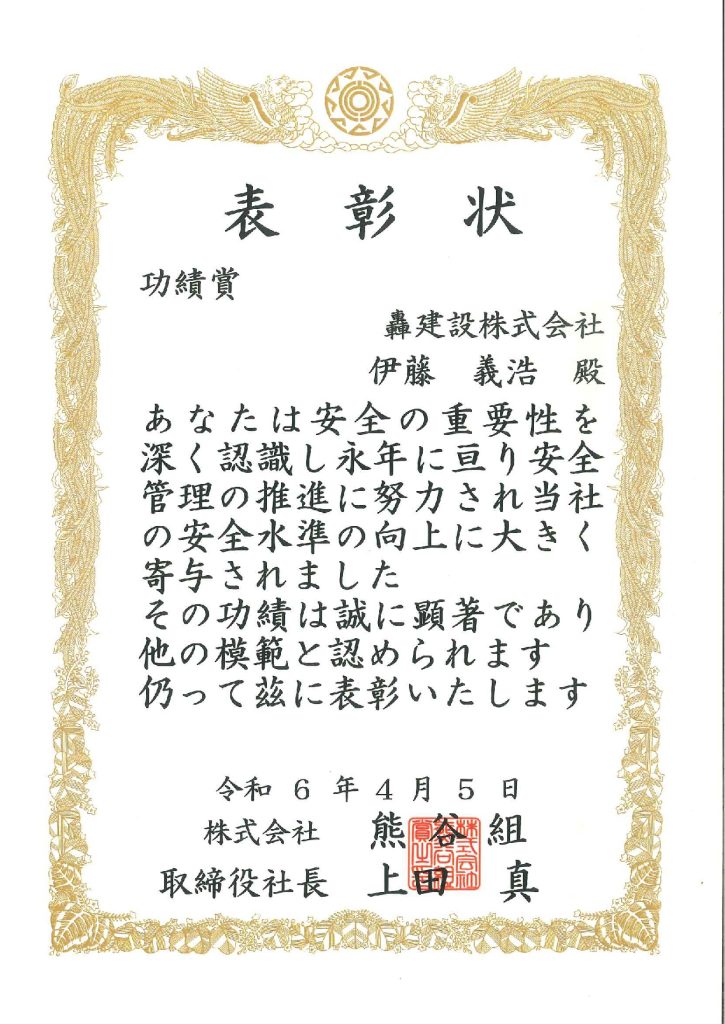 表彰状
功績賞
轟建設株式会社
伊藤　義浩　殿
あなたは安全の重要性を
深く認識し永年に亘り安全
管理の推進に努力され当社
の安全水準の向上に大きく
寄与されました
その功績は誠に顕著であり
他の模範と認められます
仍って茲に表彰いたします
令和６年４月５日
株式会社　熊谷組
取締役社長　上田　真